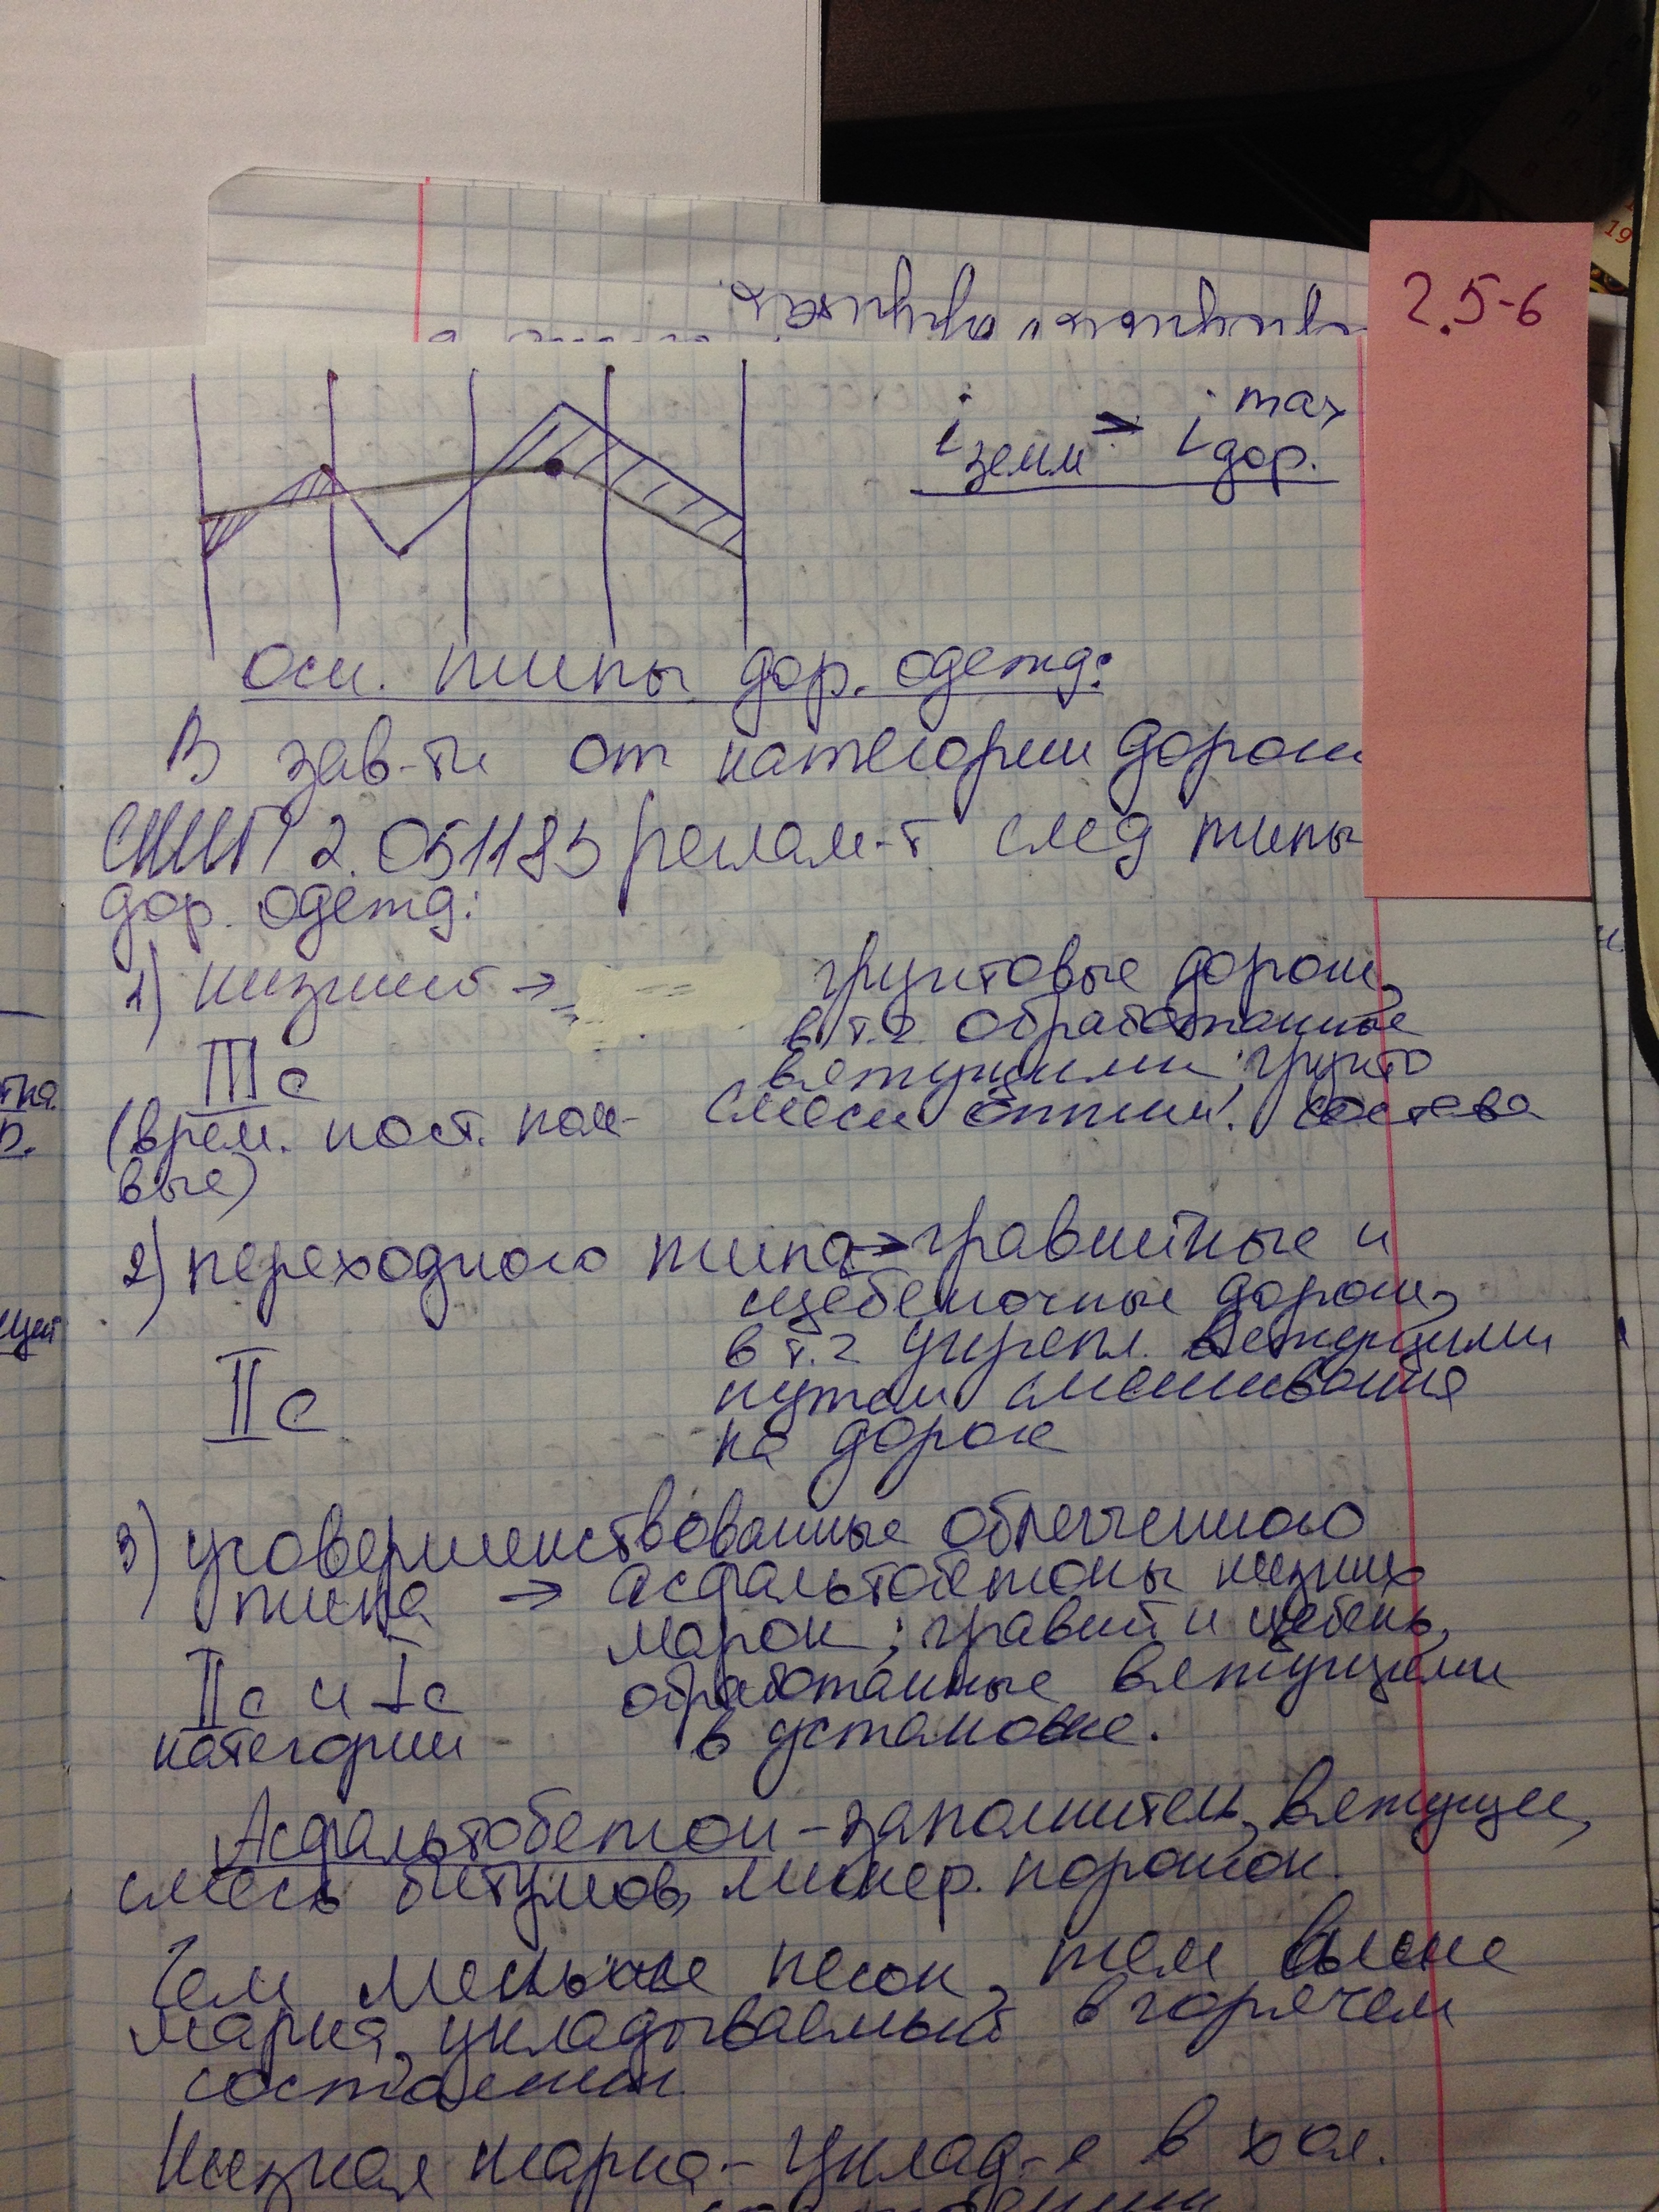 2.5-6
i земл = i max дор.
Осн. типы дор. одежд:
В зав-ти от категории дороги
СНИП 2.051185 реглам-т след типы
дор. одежд:
1) низшие → грунтовые дороги,
в т.ч. обработанные
вяжущими; грунто
смеси оптим. состава
IIIс
(врем. пост. поле-
вые)
2) переходного типа → гравийные и
щебеночные дороги,
в т.ч. укрепл. вяжущими
путем смешивания
на дороге
IIс
3) усовершенствованные облегченного
типа → асфальтобетоны низких
марок; гравий и щебень,
обработанные вяжущими
в установке.
IIс и Iс
категории
Асфальтобетон - заполнитель, вяжущее,
смесь битумов, минер. порошок.
Чем меньше песок, тем выше
марка, укладываемый в горячем
состоянии.
Низкая марка - уклад-я в хол.